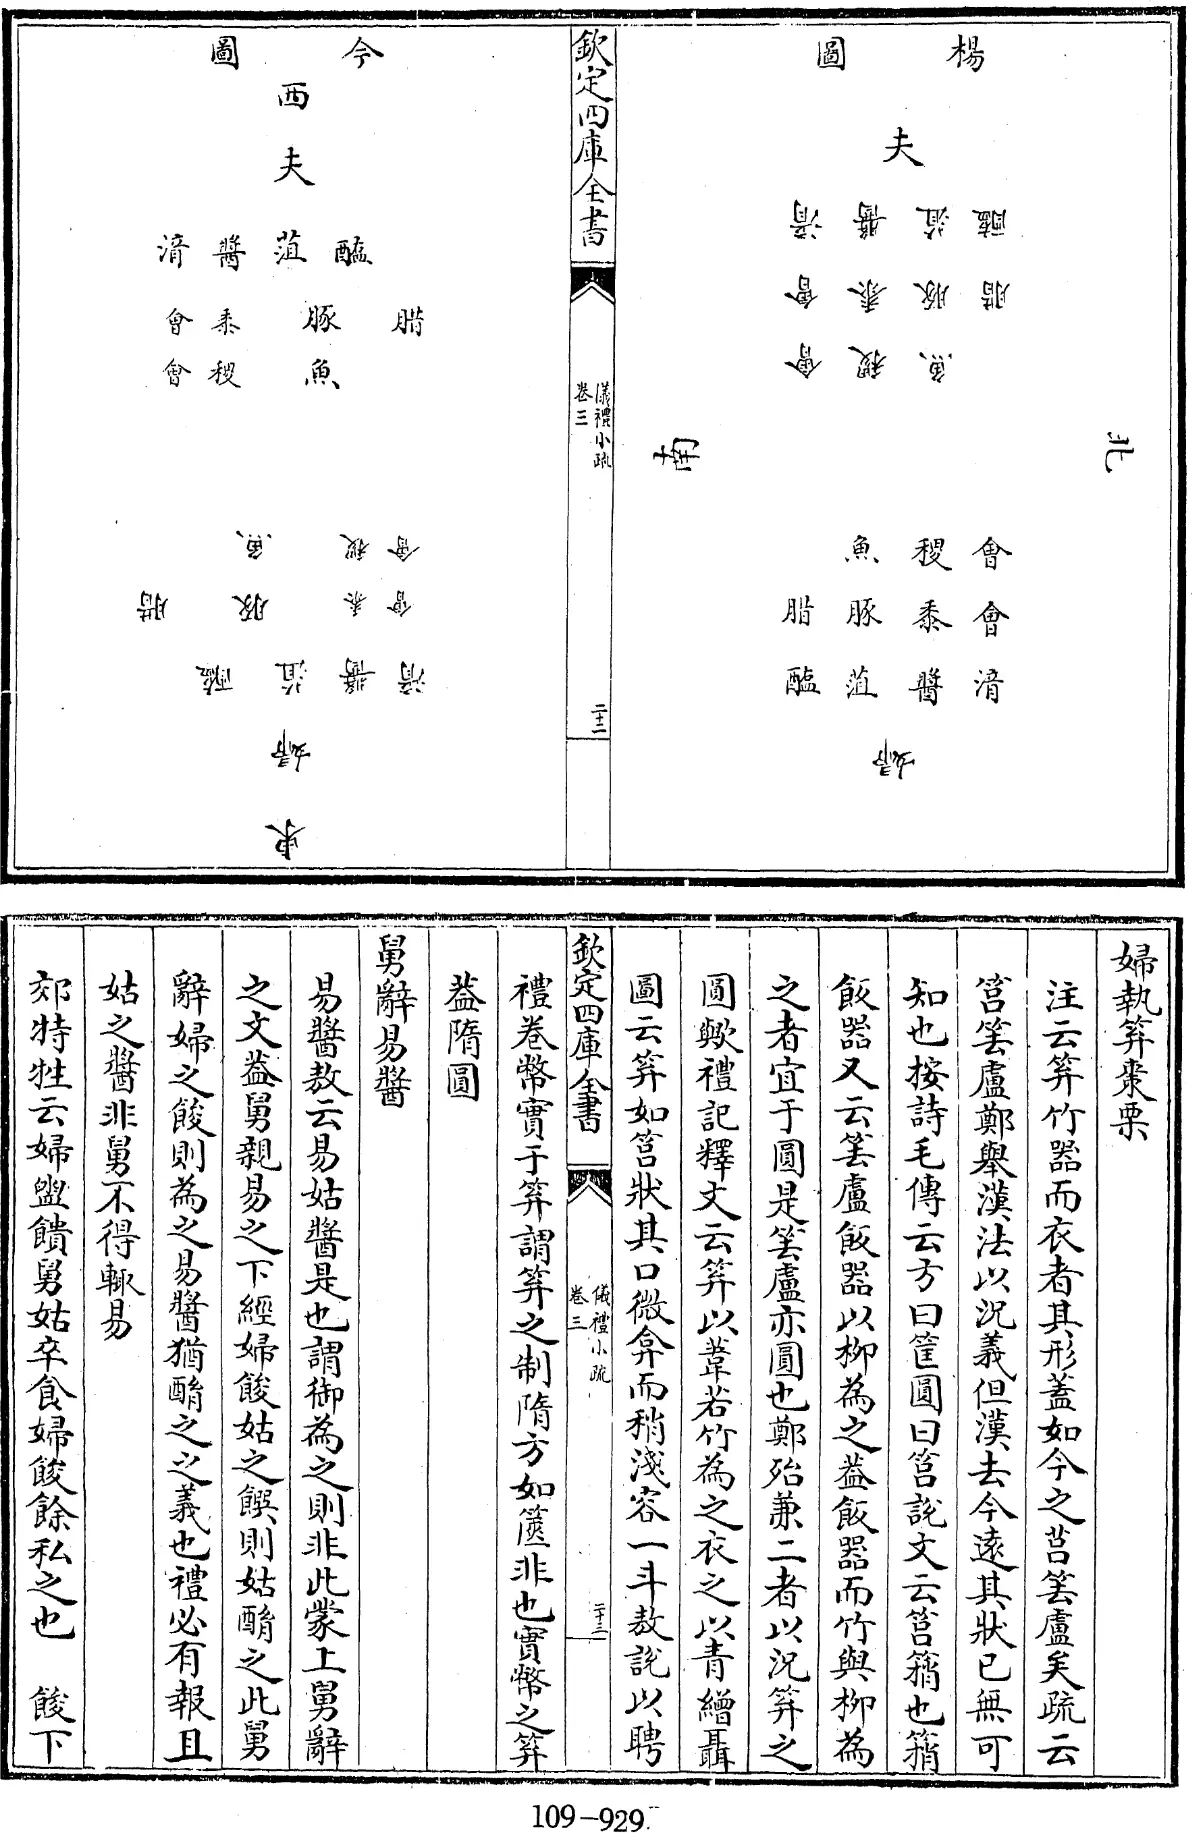 楊圖
夫
醢 菹 醬 湆
腊 豚 黍 會
魚 稷 會
北 南
會 稷 魚
會 黍 豚 腊
湆 醬 菹 醢
婦
欽定四庫全書
儀禮小疏
卷三
二十二
今圖
西
夫
醢 菹 醬 湆
腊 豚 黍 會
魚 稷 會
會 稷 魚
會 黍 豚 腊
湆 醬 菹 醢
婦
東
婦執笲棗栗
注云笲竹器而衣者其形蓋如今之筥䇱盧矣疏云
筥䇱盧鄭舉漢法以況義但漢去今遠其狀已無可
知也按詩毛傳云方曰筐圓曰筥說文云筥䈰也䈰
飯器又云䇱盧飯器以柳為之葢飯器而竹與柳為
之者宜于圓是䇱盧亦圓也鄭殆兼二者以況笲之
圓歟禮記釋文云笲以葦若竹為之衣之以青繒聶
圖云笲如筥狀其口微弇而稍淺容一斗敖說以聘
欽定四庫全書
儀禮小疏
卷三
二十三
禮卷幣實于笲謂笲之制隋方如篋非也實幣之笲
葢隋圓
舅辭易醬
易醬敖云易姑醬是也謂御為之則非此蒙上舅辭
之文葢舅親易之下經婦餕姑之饌則姑酳之此舅
辭婦之餕則為之易醬猶酳之之義也禮必有報且
姑之醬非舅不得輙易
郊特牲云婦盥饋舅姑卒食婦餕餘私之也 餕下
109-929